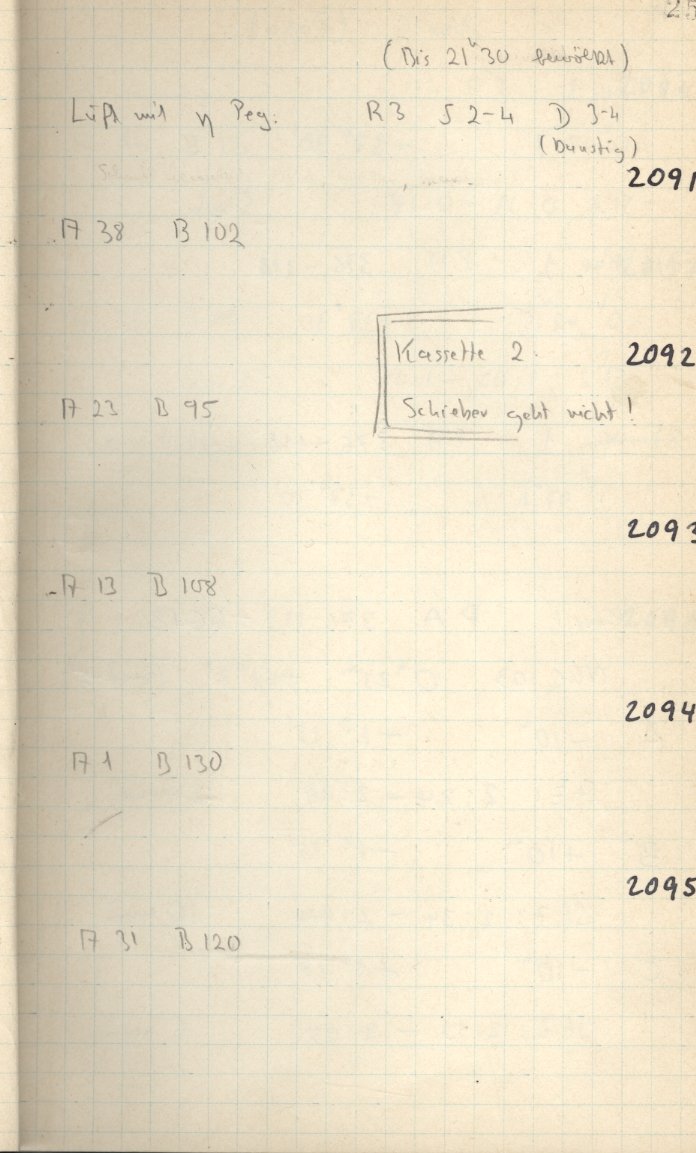 25
(Bis 21ʰ30 bewölkt)
Luft mit η Peg. R3 S 2-4 D 3-4
(Dunstig)
2091
A 38 B 102
Kassette 2. 2092
A 23 B 95 Schieber geht nicht!
2093
A 13 B 108
2094
A 1 B 130
2095
A 31 B 120